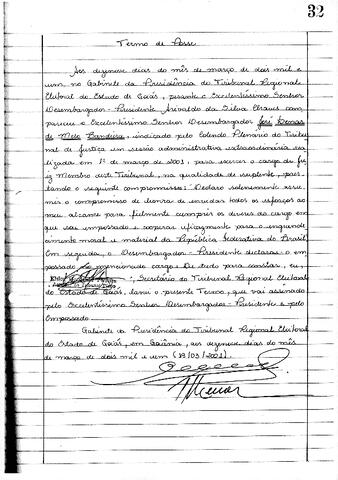 32
Termo de Posse
Aos dezenove dias do mês de março de dois mil e
um, no Gabinete da Presidência do Tribunal Regional
Eleitoral do Estado de Goiás, perante o Excelentíssimo Senhor
Desembargador - Presidente, da Silva com
pareceu o Excelentíssimo Senhor Desembargador José Lenar
de Melo Bandeira, indicado pelo Colendo Plenário do Tribu
nal de Justiça em sessão administrativa extraordinária rea
lizada em 1º de março de 2001, para exercer o cargo de Ju
iz Membro deste Tribunal, na qualidade de suplente, pres
tando o seguinte compromisso: "Declaro solenemente assu
mir o compromisso de honrar de envidar todos os esforços ao
meu alcance para fielmente cumprir os deveres do cargo em
que sou empossado e cooperar eficazmente para o engrande
cimento moral e material da República Federativa do Brasil
Em seguida, o Desembargador - Presidente declarou o em
possado no mencionado cargo. De tudo para constar, eu,
, Secretário do Tribunal Regional Eleitoral
do Estado de Goiás, lavrei o presente Termo, que vai assinado
pelo Excelentíssimo Senhor Desembargador - Presidente e pelo
Empossado.
Gabinete da Presidência do Tribunal Regional Eleitoral
do Estado de Goiás, em Goiânia, aos dezenove dias do mês
de março de dois mil e um (19/03/2001).